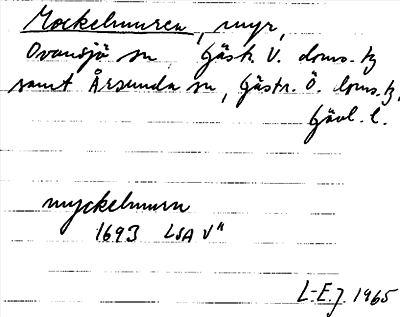 Mockelmuren, myr,
Ovansjö sn, Gästr. V. doms. tg
samt Årsunda sn, Gästr. Ö. doms. tg,
Gävl. l.
myckelmurn
1693 LSA V"
L-E.J. 1965